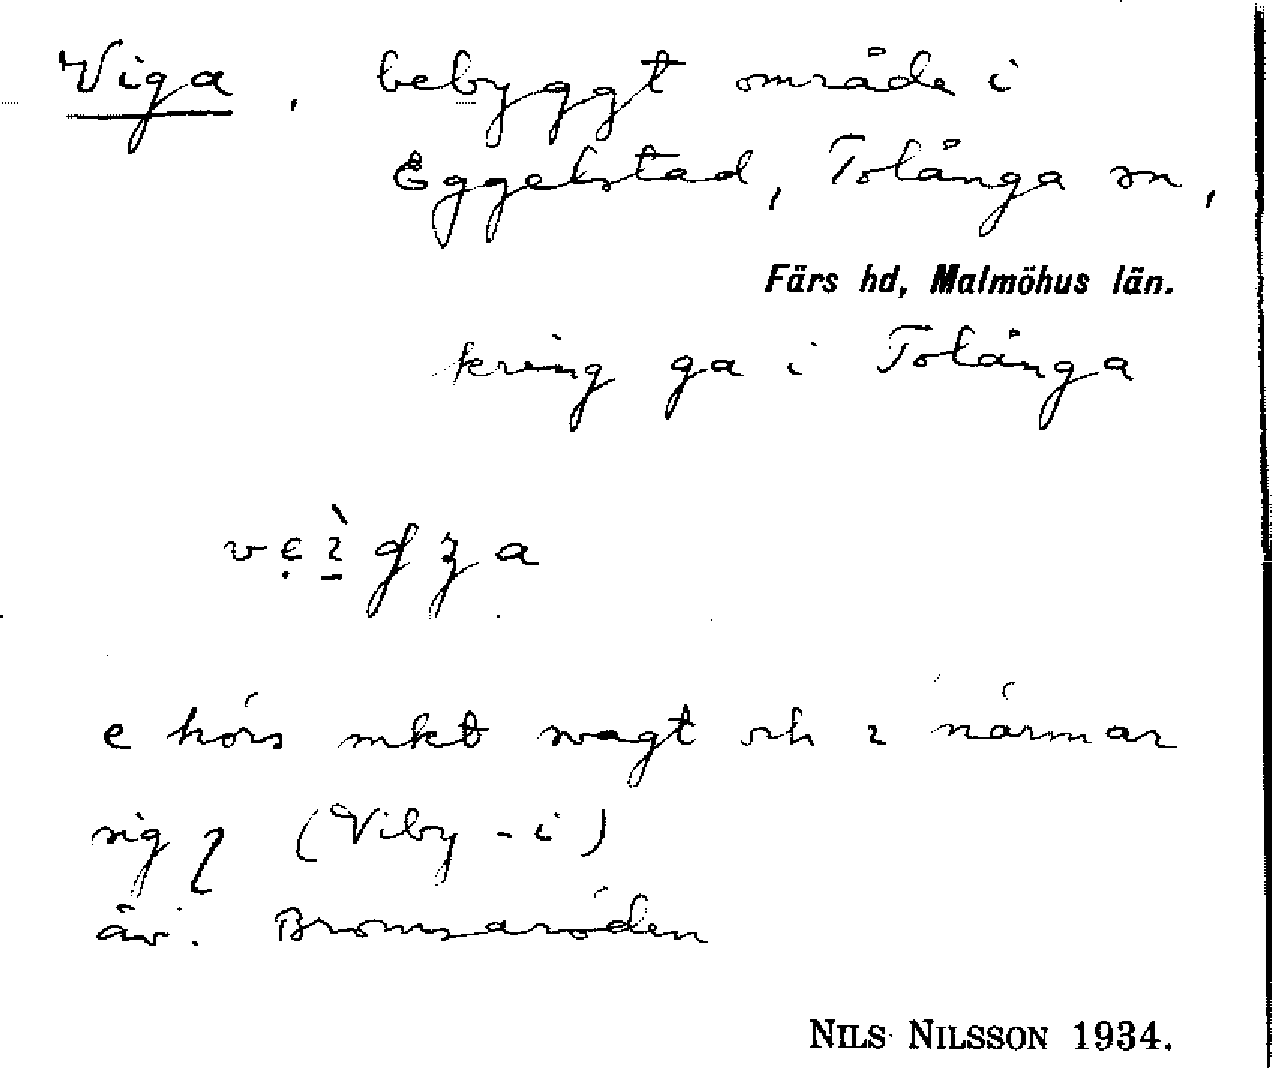 Viga, bebyggt område i
Eggelstad, Tolånga sn,
Färs hd, Malmöhus län.
kring ga i Tolånga
e hörs mkt svagt och ɿ närmar
sig (Viby-i)
äv. Bromsaröden
NILS NILSSON 1934.